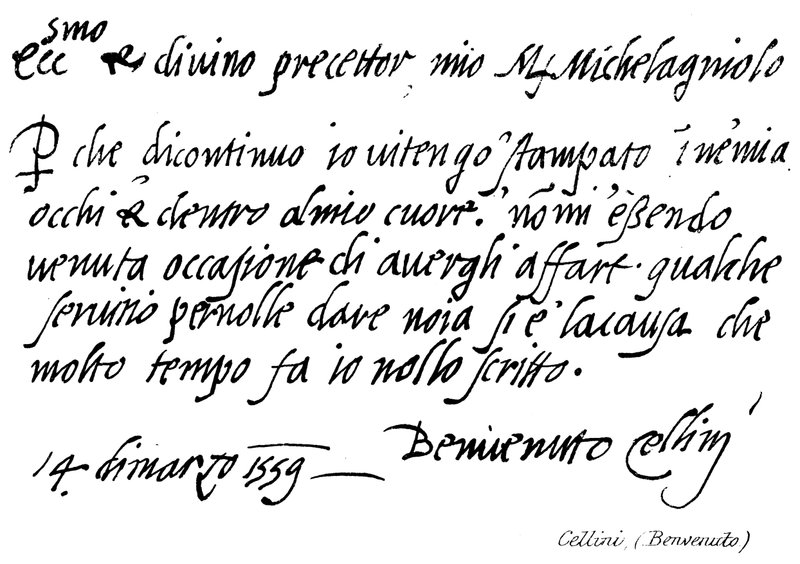 Ecc^smo & divino precettor mio M. Michelagniolo
P che dicontinuo io vitengo stampato īnemia
occhi & dentro almio cuore. nōmi essendo
venuta occasione di avergli affare qualche
servitio pernolle dare noia si e lacausa che
molto tempo fa io nollo scritto.
14. dimarzo 1559 — Benvenuto Cellini
Cellini, (Benvenuto)